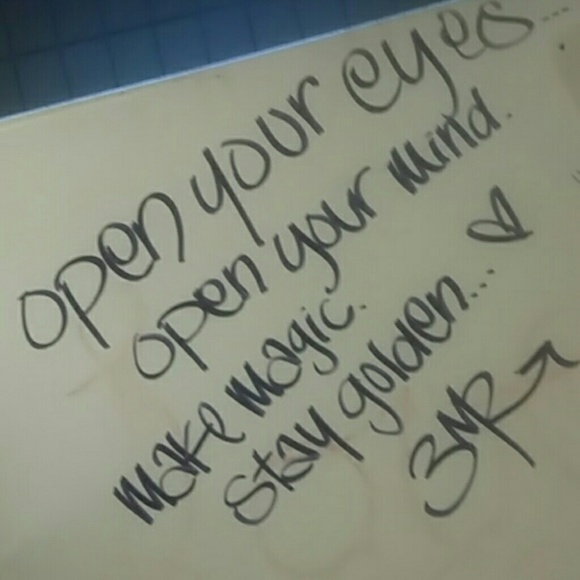 open your eyes...
open your mind.
make magic.
stay golden...